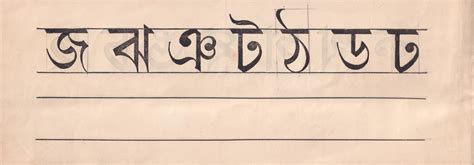 জ ঝ ঞ ট ঠ ড ঢ